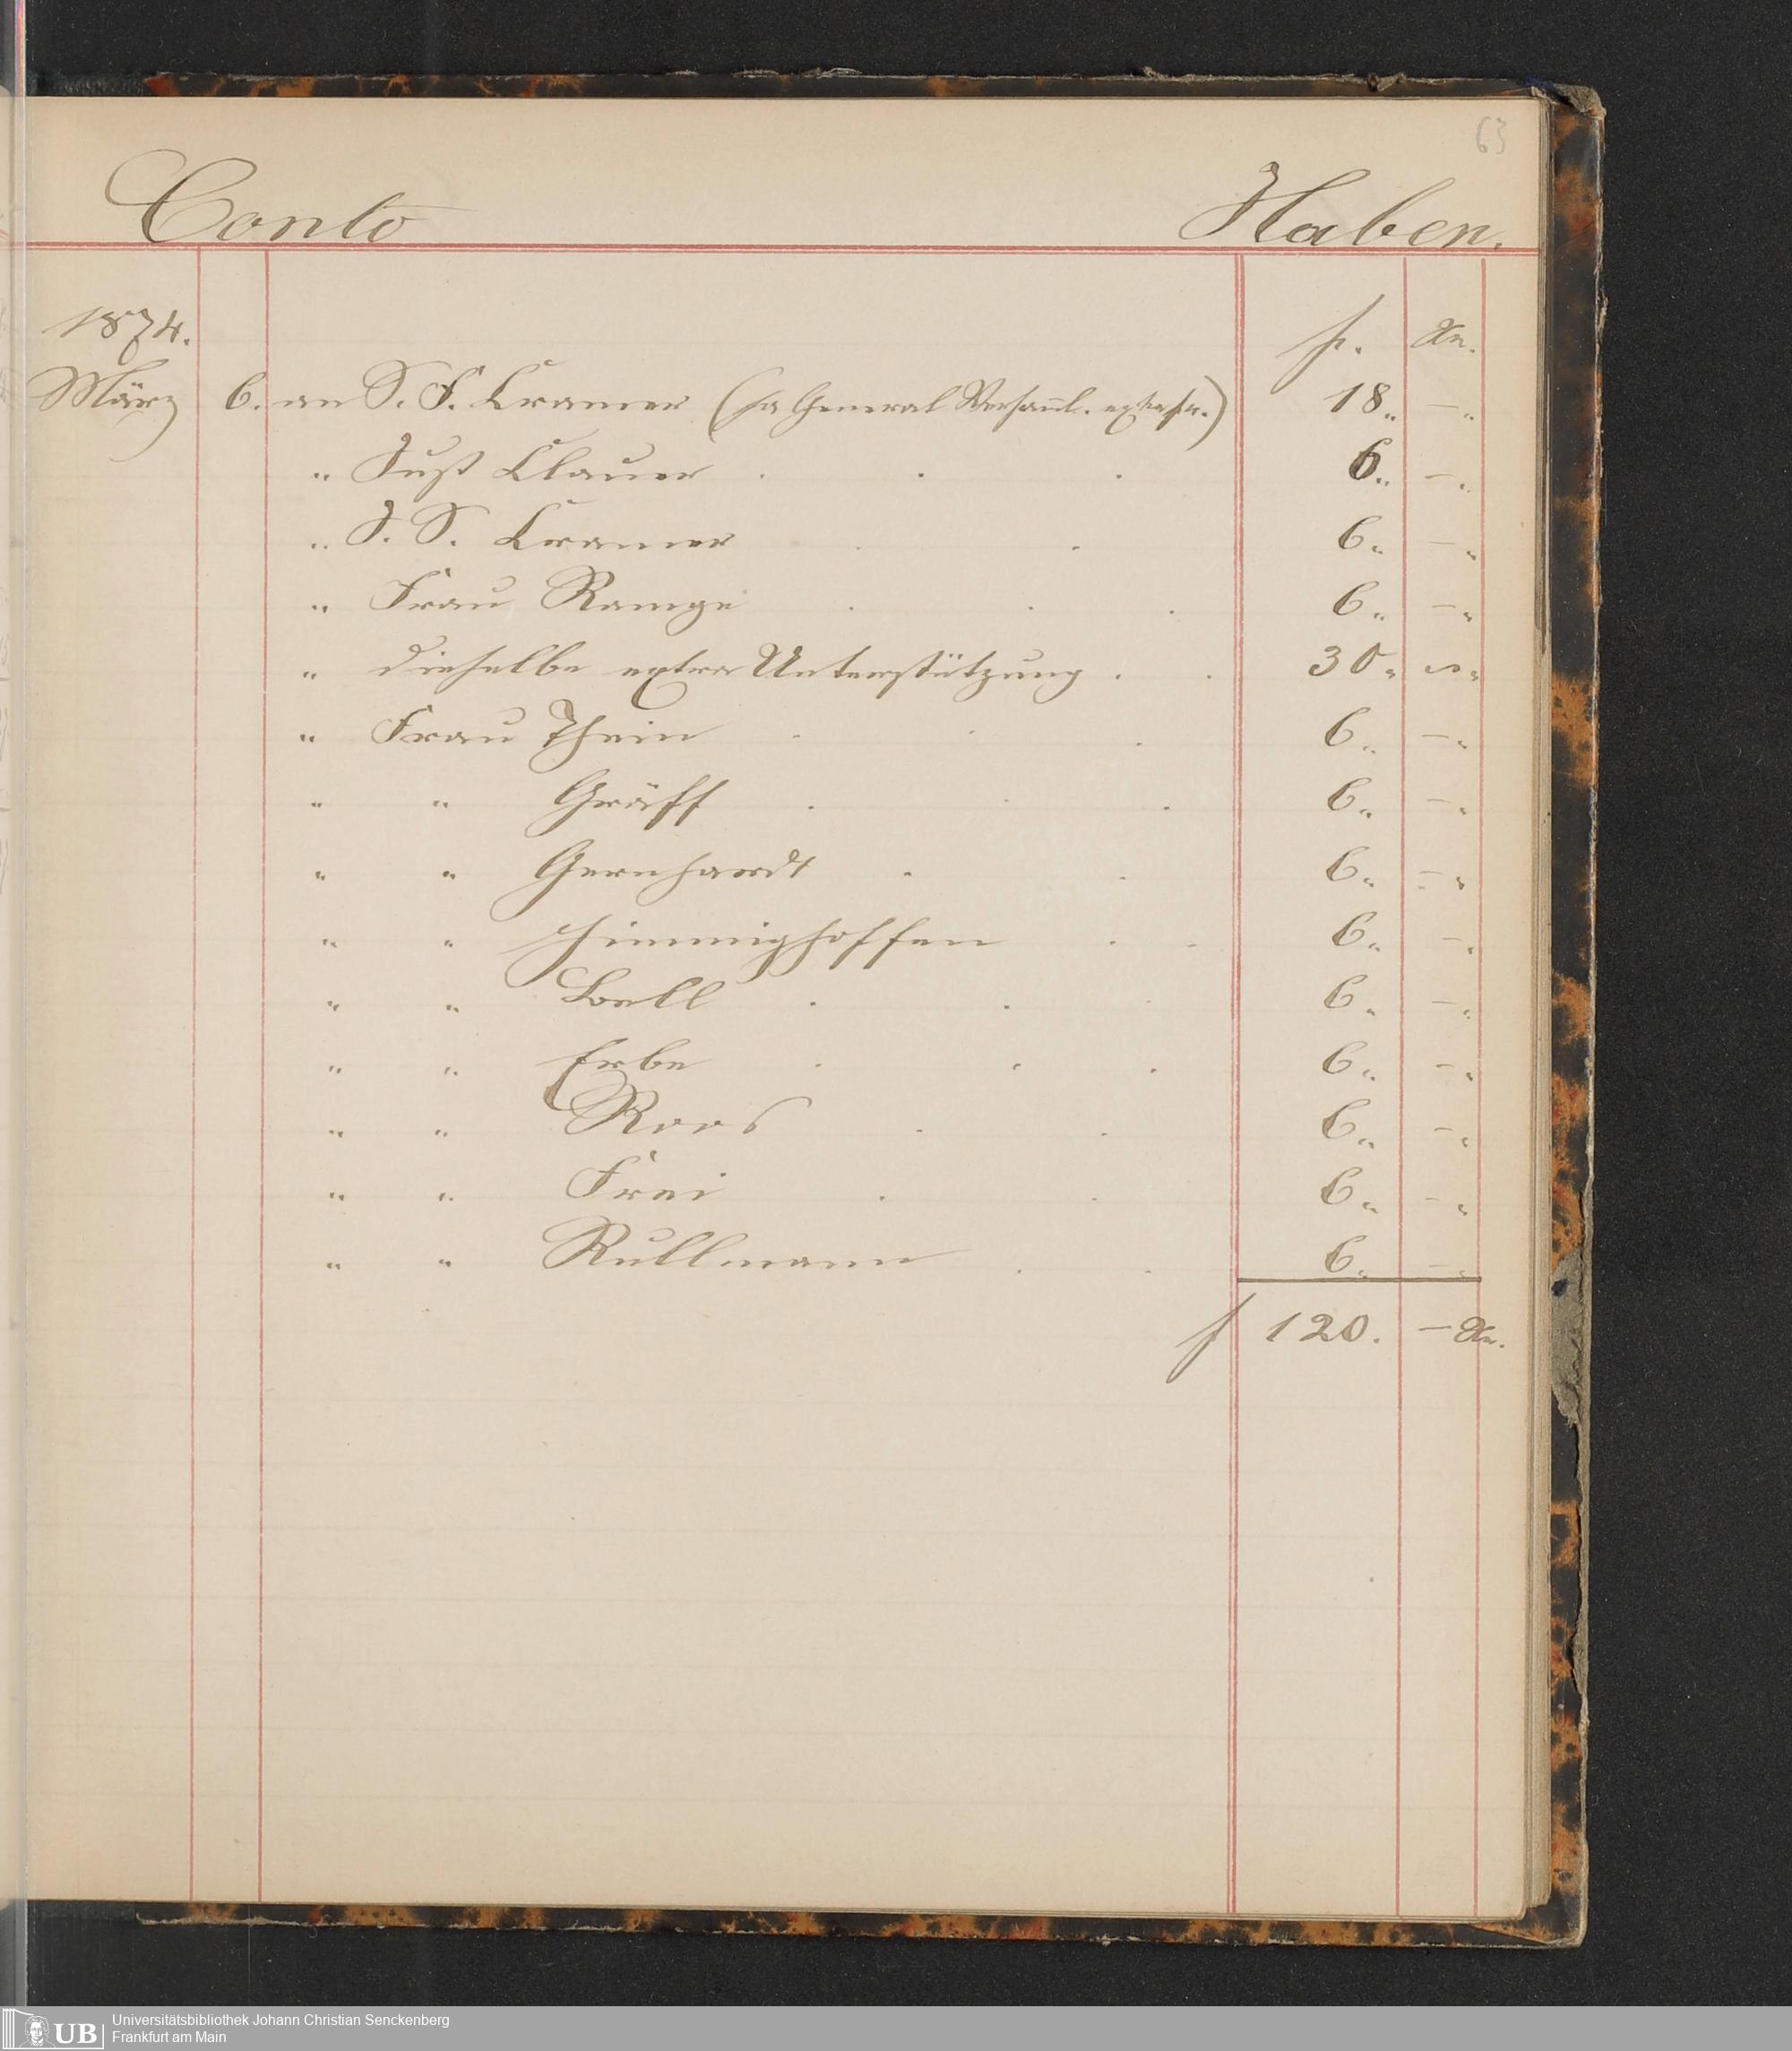 63
Conto Haben.
1874. fl. Xr.
März 6. an S. F. Cramer (la General Versaml. ) 18.. — "
" Just Clauer . . . 6.. — "
" J. S. Cramer . . 6.. — "
" Frau Ramge . . . 6.. — "
" dieselbe extra Unterstützung . . 30.. — "
" Frau Thein . . . 6.. — "
" " Gräff . . . 6.. — "
" " Gernhardt . . 6.. — "
" " Himmighoffen . . 6.. — "
" " Bell . . . 6.. — "
" " Erbe . . . 6.. — "
" " Roos . . 6.. — "
" " Frei . . 6.. — "
" " Rullmann . . 6.. — "
f 120. — Xr.
UB Universitätsbibliothek Johann Christian Senckenberg
Frankfurt am Main